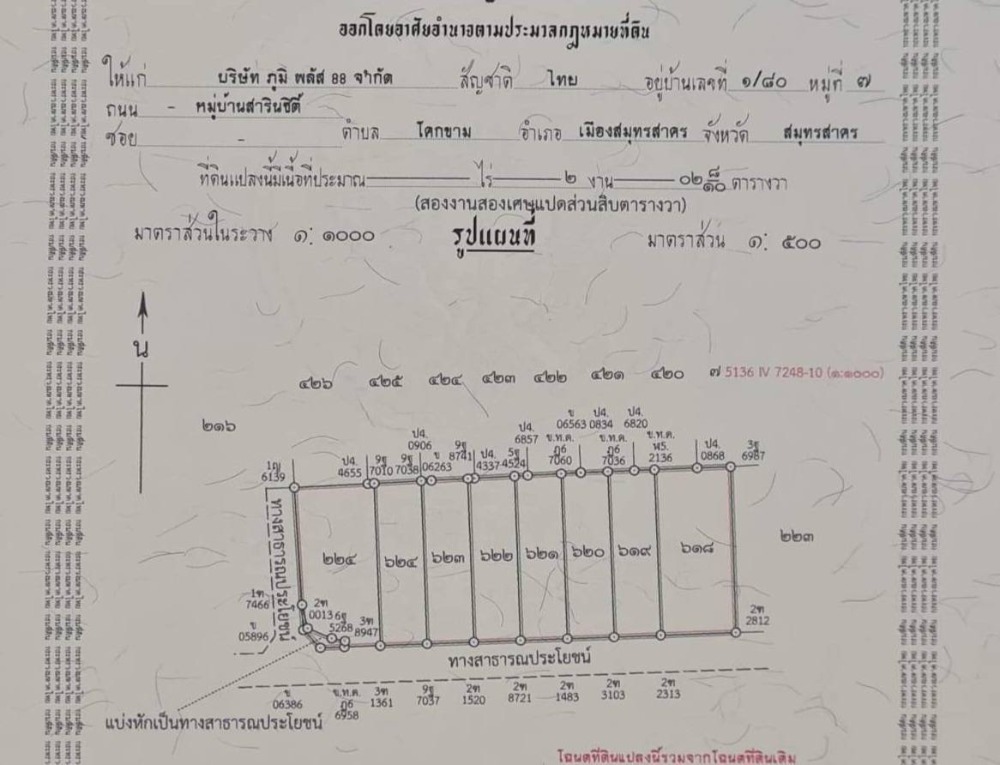 ออกโดยอาศัยอำนาจตามประมวลกฎหมายที่ดิน
ให้แก่ บริษัท ภูมิ พลัส 88 จำกัด สัญชาติ ไทย อยู่บ้านเลขที่ ๑/๘๐ หมู่ที่ ๗
ถนน - หมู่บ้านสารินซิตี้
ซอย - ตำบล โคกขาม อำเภอ เมืองสมุทรสาคร จังหวัด สมุทรสาคร
ที่ดินแปลงนี้มีเนื้อที่ประมาณ ไร่ ๒ งาน ๐๒ ๘/๑๐ ตารางวา
(สองงานสองเศษแปดส่วนสิบตารางวา)
มาตราส่วนในระวาง ๑: ๑๐๐๐ รูปแผนที่ มาตราส่วน ๑: ๕๐๐
น
๔๒๖ ๔๒๕ ๔๒๔ ๔๒๓ ๔๒๒ ๔๒๑ ๔๒๐ ๗ 5136 IV 7248-10 (๑:๑๐๐๐)
๒๑๖
ข ป4. ป4.
06563 0834 6820
ป4. ป4. ข.ท.ด. ข.ท.ด. ข.ท.ด.
0906 9ฐ 6857 ฎ6 ฎ6 ห5. ป4. 3ฐ
1ญ ป4. 9ฐ 9ฐ ข 8741 ป4. 5ฐ 7060 7036 2136 0868 6987
6139 4655 7010 7038 06263 4337 4524
ทางสาธารณประโยชน์
๒๒๔ ๖๒๔ ๖๒๓ ๖๒๒ ๖๒๑ ๖๒๐ ๖๑๙ ๖๑๘ ๒๒๓
1ฑ 2ฑ
7466 0013 6ฐ 3ฑ 2ฑ
ข 5268 8947 2812
05896
ทางสาธารณประโยชน์
ข ข.ท.ด. 3ฑ 9ฐ 2ฑ 2ฑ 2ฑ 2ฑ 2ฑ
06386 ฎ6 1361 7037 1520 8721 1483 3103 2313
6958
แบ่งหักเป็นทางสาธารณประโยชน์
โฉนดที่ดินแปลงนี้รวมจากโฉนดที่ดินเดิม